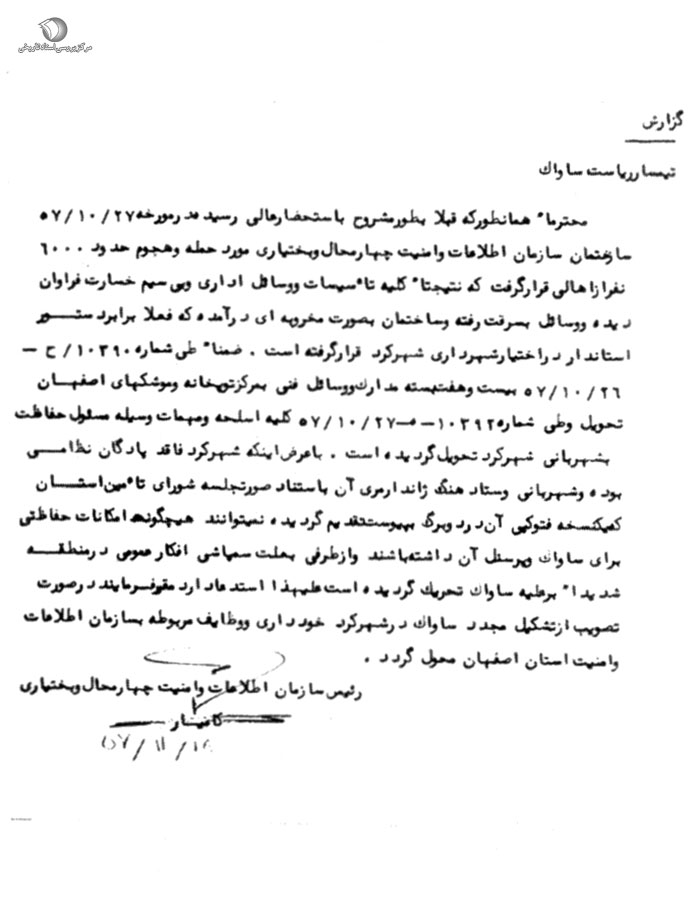 مرکز بررسی اسناد تاریخی
گزارش
تیمسار ریاست ساواک
محترما" همانطورکه قبلا بطورمشروح باستحضارعالی رسید ه درمورخه ۵۷/۱۰/۲۷
ساختمان سازمان اطلاعات وامنیت چهارمحال وبختیاری مورد حمله وهجوم حدود ۶۰۰۰
نفرازاهالی قرارگرفت که نتیجتا" کلیه تا"سیسات ووسائل اداری وبی سیم خسارت فراوان
دیده ووسائل بسرقت رفته وساختمان بصورت مخروبه ای درآمده که فعلا برابردستور
استاندار دراختیارشهرداری شهرکرد قرارگرفته است . ضمنا" طی شماره ۱۰۳۹۰/ح -
۵۷/۱۰/۲۶ بیست وهفت بسته مدارک ووسائل فنی بمرکزتوپخانه وموشکهای اصفهان
تحویل وطی شماره ۱۰۳۹۲-ه-۵۷/۱۰/۲۷ کلیه اسلحه ومهمات وسیله مسئول حفاظت
بشهربانی شهرکرد تحویل گردیده است . باعرض اینکه شهرکرد فاقد پادگان نظامی
بوده وشهربانی وستاد هنگ ژاندارمری آن باستناد صورتجلسه شورای تا"مین استان
که یکنسخه فتوکپی آن در دو برگ بپیوست تقدیم گردیده نمیتوانند هیچگونه امکانات حفاظتی
برای ساواک وپرسنل آن داشته باشند وازطرفی بعلت سمپاشی افکار عمومی درمنطقه
شدیدا" برعلیه ساواک تحریک گردیده است علیهذا استدعا دارد مقررفرمایند درصورت
تصویب ازتشکیل مجدد ساواک درشهرکرد خودداری ووظایف مربوطه بسازمان اطلاعات
وامنیت استان اصفهان محول گردد .
رئیس سازمان اطلاعات وامنیت چهارمحال وبختیاری